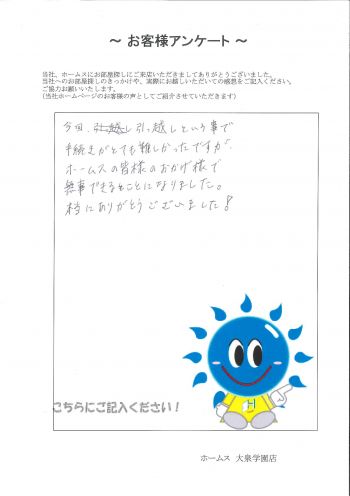 ～ お客様アンケート ～
当社、ホームスにお部屋探しにご来店いただきましてありがとうございました。
当社へのお部屋探しのきっかけや、実際にお越しいただいての感想をご記入ください。
ご協力お願いいたします。
(当社ホームページのお客様の声としてご紹介させていただきます)
今回、引っ越しという事で
手続きがとても難しかったですが、
ホームスの皆様のおかげ様で
無事できることになりました。
本当にありがとうございました！
H
こちらにご記入ください！
ホームス 大泉学園店